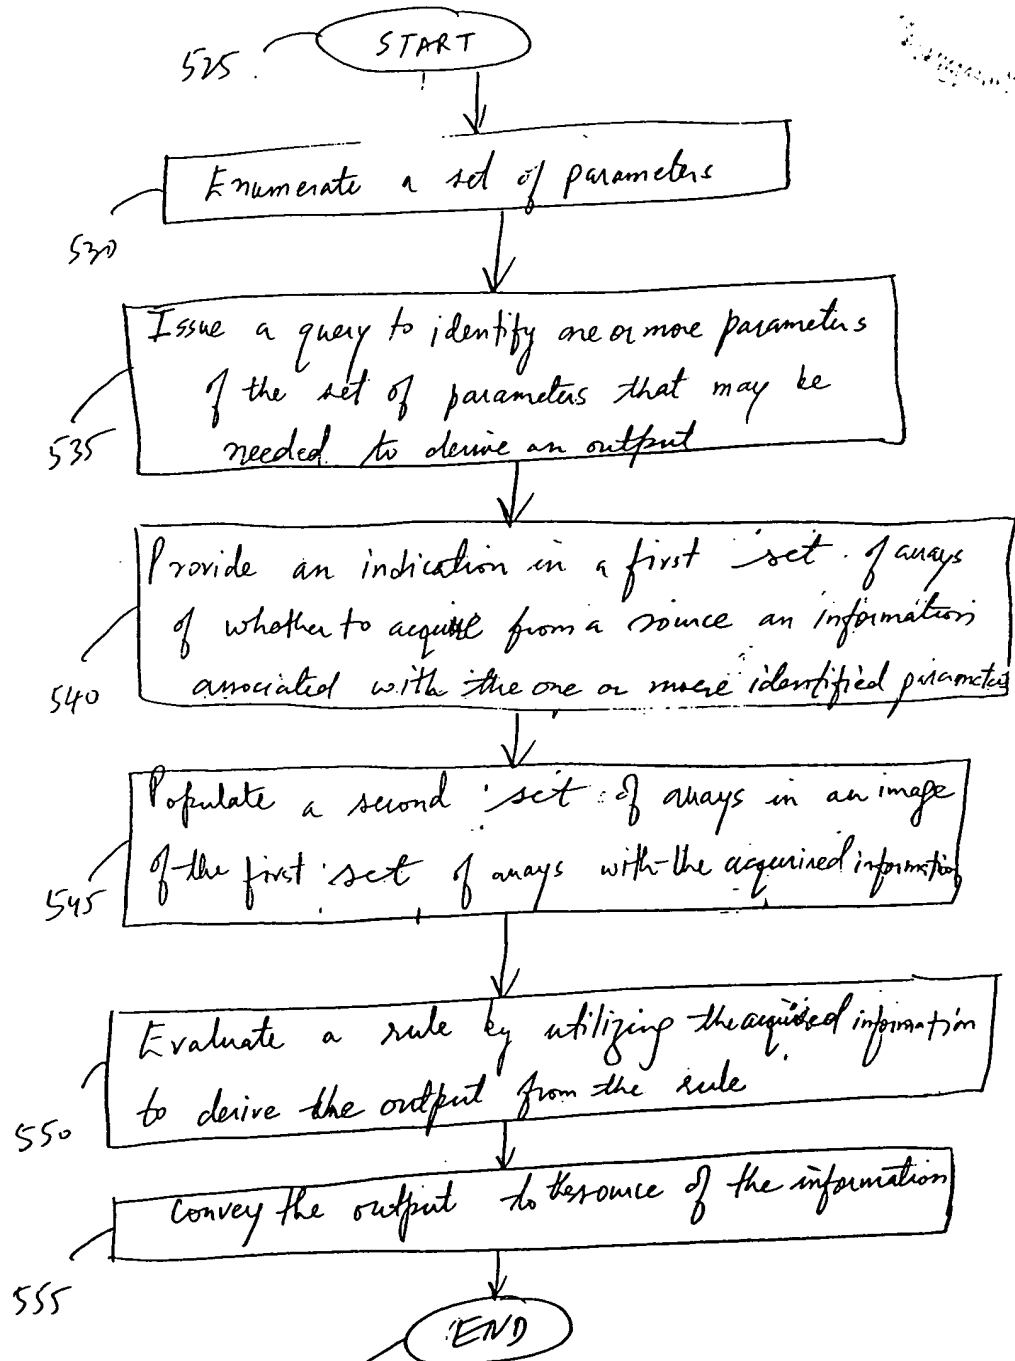 525
START
Enumerate a set of parameters
530
Issue a query to identify one or more parameters
of the set of parameters that may be
needed to derive an output
535
Provide an indication in a first set of arrays
of whether to acquire from a source an information
associated with the one or more identified parameters
540
Populate a second set of arrays in an image
of the first set of arrays with the acquired information
545
Evaluate a rule by utilizing the acquired information
to derive the output from the rule
550
Convey the output to the source of the information
555
END